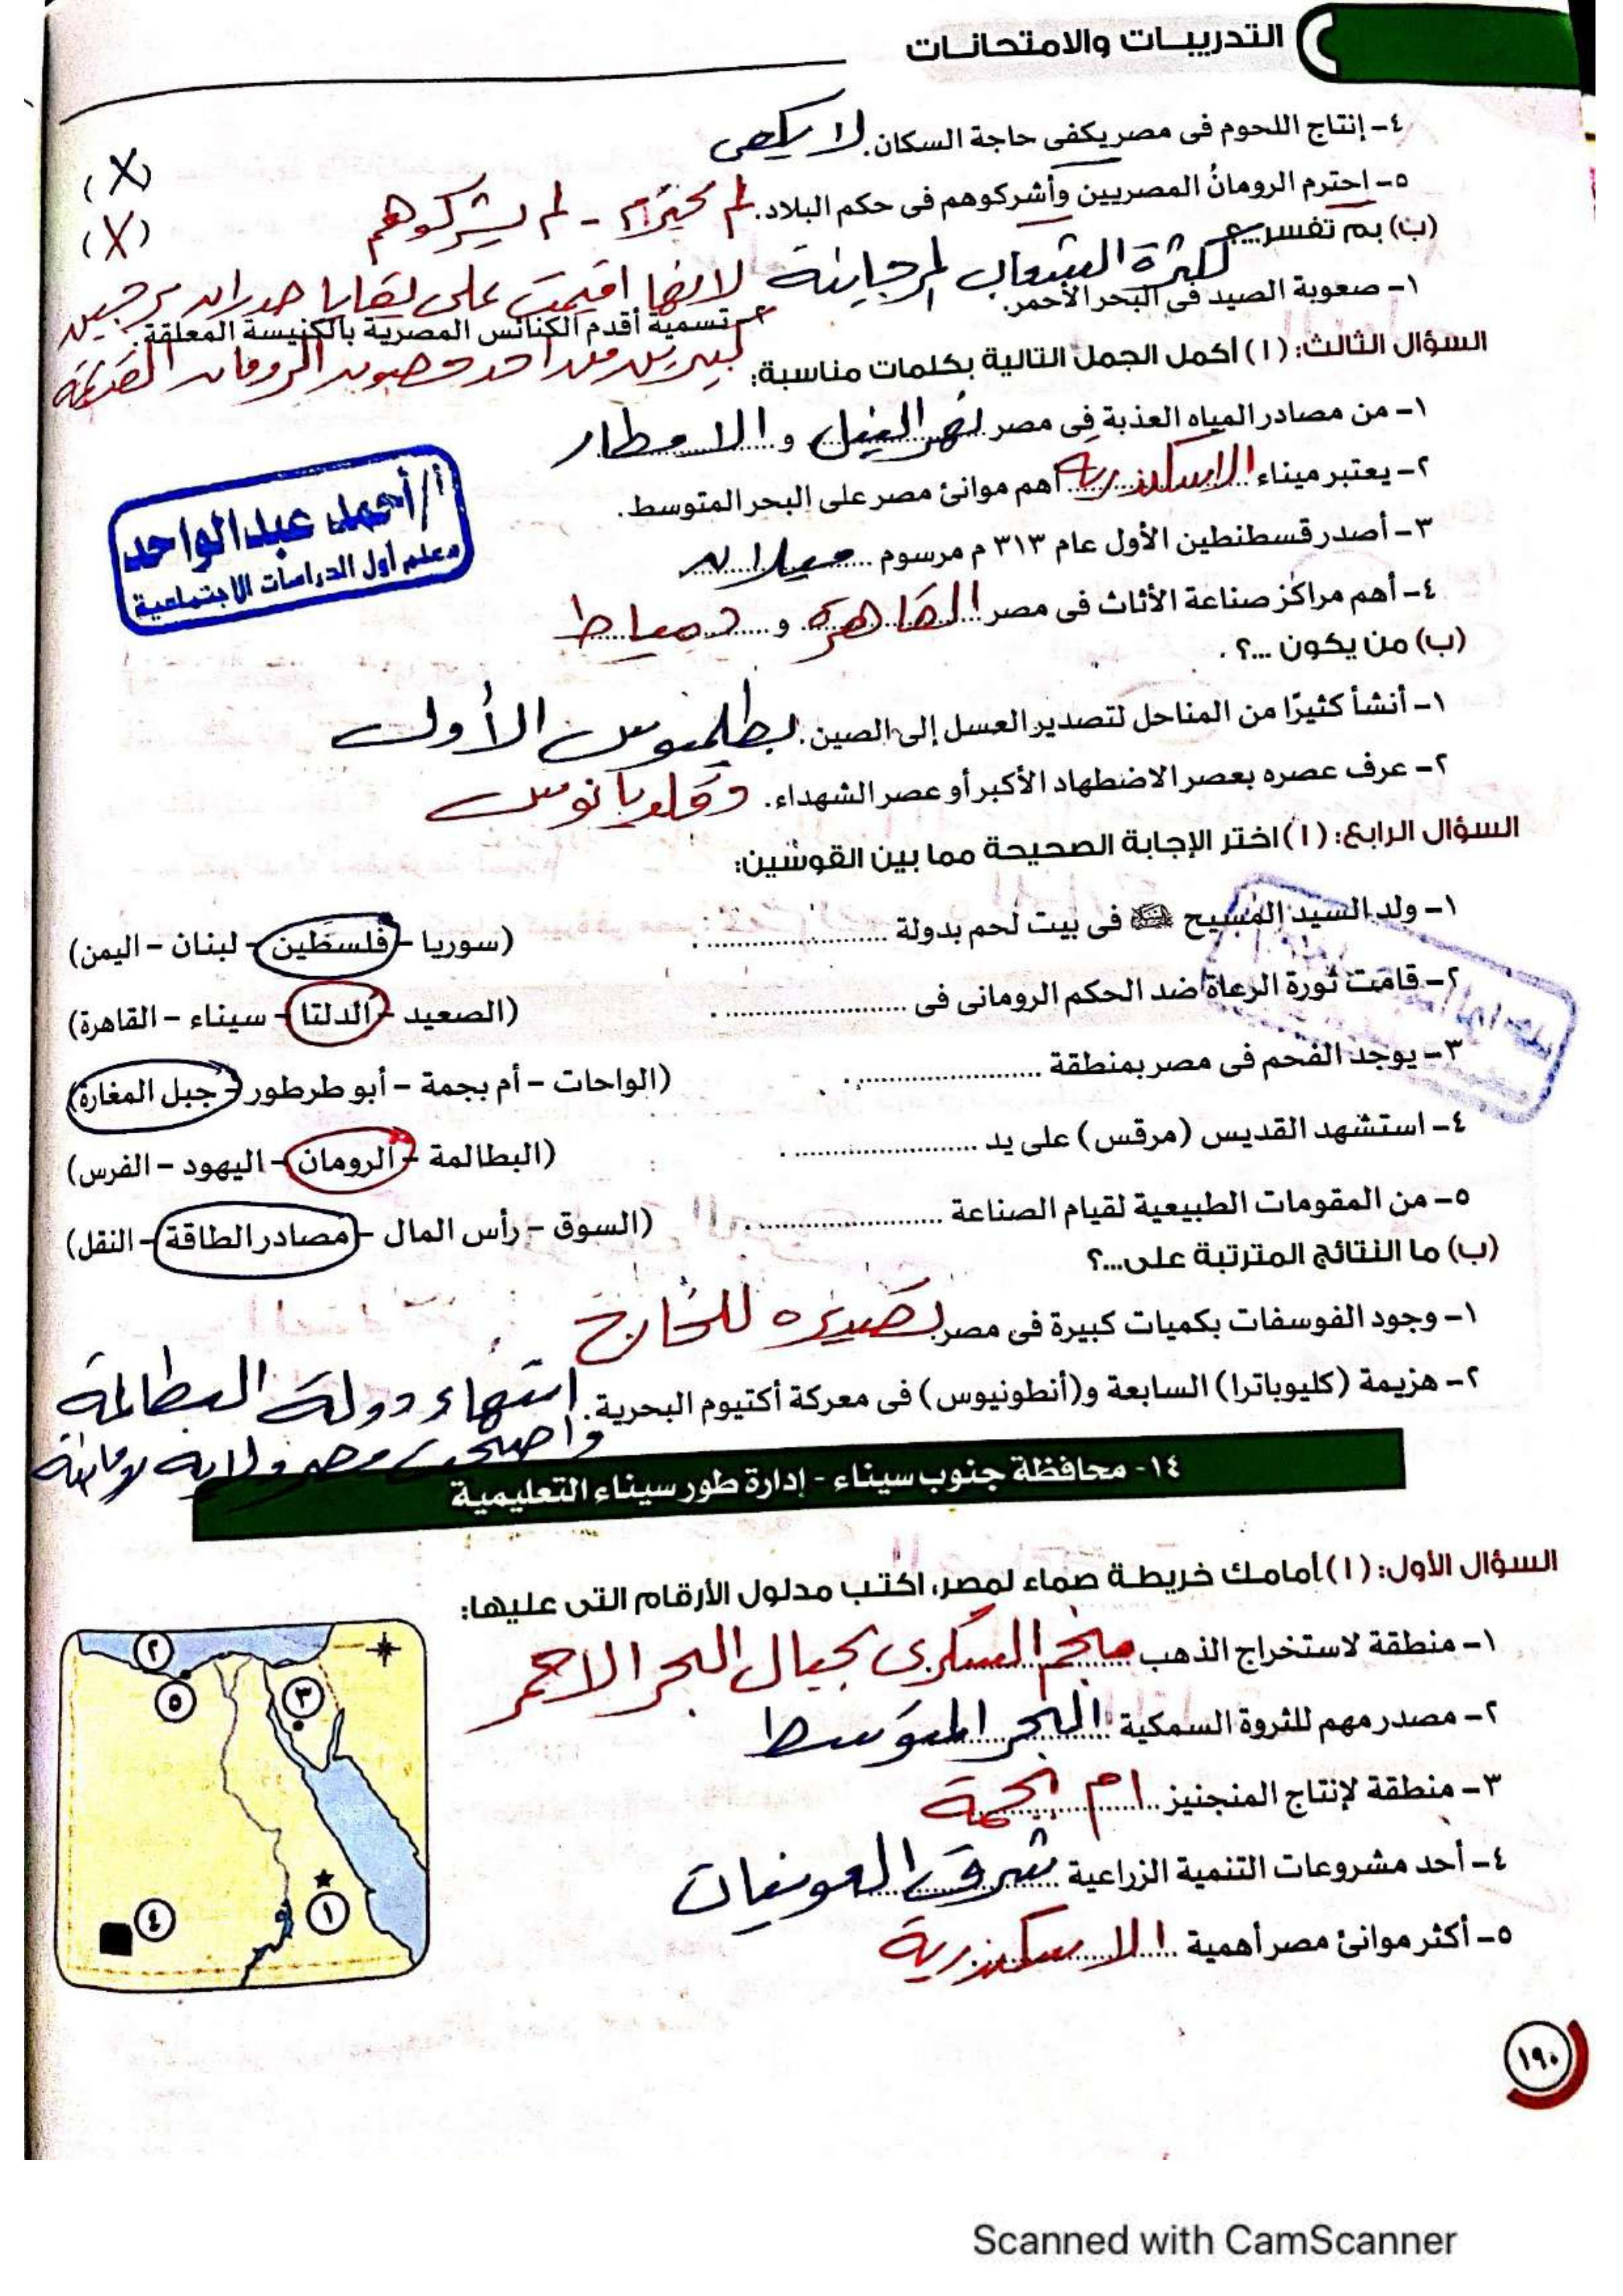 التدريبات والامتحانات
٤- إنتاج اللحوم فى مصر يكفى حاجة السكان. لا يكفى (X)
٥- احترم الرومان المصريين وأشركوهم فى حكم البلاد. لم يحترم - لم يشركوهم (X)
(ب) بم تفسر...؟
١- صعوبة الصيد فى البحر الأحمر. لكثرة الشعاب المرجانية
٢- تسمية أقدم الكنائس المصرية بالكنيسة المعلقة. لانها اقيمت على بقايا جدران برجين كبيرين من احد حصون الرومان القديمة
السؤال الثالث: (١) أكمل الجمل التالية بكلمات مناسبة:
١- من مصادر المياه العذبة فى مصر نهر النيل و الامطار
٢- يعتبر ميناء الاسكندرية أهم موانئ مصر على البحر المتوسط.
٣- أصدر قسطنطين الأول عام ٣١٣ م مرسوم ميلان
٤- أهم مراكز صناعة الأثاث فى مصر القاهرة و دمياط
أ/ أحمد عبدالواحد
معلم أول الدراسات الاجتماعية
(ب) من يكون ...؟
١- أنشأ كثيرًا من المناحل لتصدير العسل إلى الصين. بطلميوس الأول
٢- عرف عصره بعصر الاضطهاد الأكبر أو عصر الشهداء. دقلديانوس
السؤال الرابع: (١) اختر الإجابة الصحيحة مما بين القوسين:
١- ولد السيد المسيح فى بيت لحم بدولة ........ (سوريا - فلسطين - لبنان - اليمن)
٢- قامت ثورة الرعاة ضد الحكم الرومانى فى ........ (الصعيد - الدلتا - سيناء - القاهرة)
٣- يوجد الفحم فى مصر بمنطقة ........ (الواحات - أم بجمة - أبو طرطور - جبل المغارة)
٤- استشهد القديس (مرقس) على يد ........ (البطالمة - الرومان - اليهود - الفرس)
٥- من المقومات الطبيعية لقيام الصناعة ........ (السوق - رأس المال - مصادر الطاقة - النقل)
(ب) ما النتائج المترتبة على...؟
١- وجود الفوسفات بكميات كبيرة فى مصر. تصديره للخارج
٢- هزيمة (كليوباترا) السابعة و(أنطونيوس) فى معركة أكتيوم البحرية. انتهاء دولة البطالمة
واصبحت مصر ولاية رومانية
١٤- محافظة جنوب سيناء - إدارة طور سيناء التعليمية
السؤال الأول: (١) أمامك خريطة صماء لمصر، اكتب مدلول الأرقام التى عليها:
١- منطقة لاستخراج الذهب منجم السكرى بجبال البحر الاحمر
٢- مصدر مهم للثروة السمكية البحر المتوسط
٣- منطقة لإنتاج المنجنيز ام بجمة
٤- أحد مشروعات التنمية الزراعية شرق العوينات
٥- أكثر موانئ مصر أهمية الاسكندرية
٢
٥
٣
٤
١
١٩٠
Scanned with CamScanner